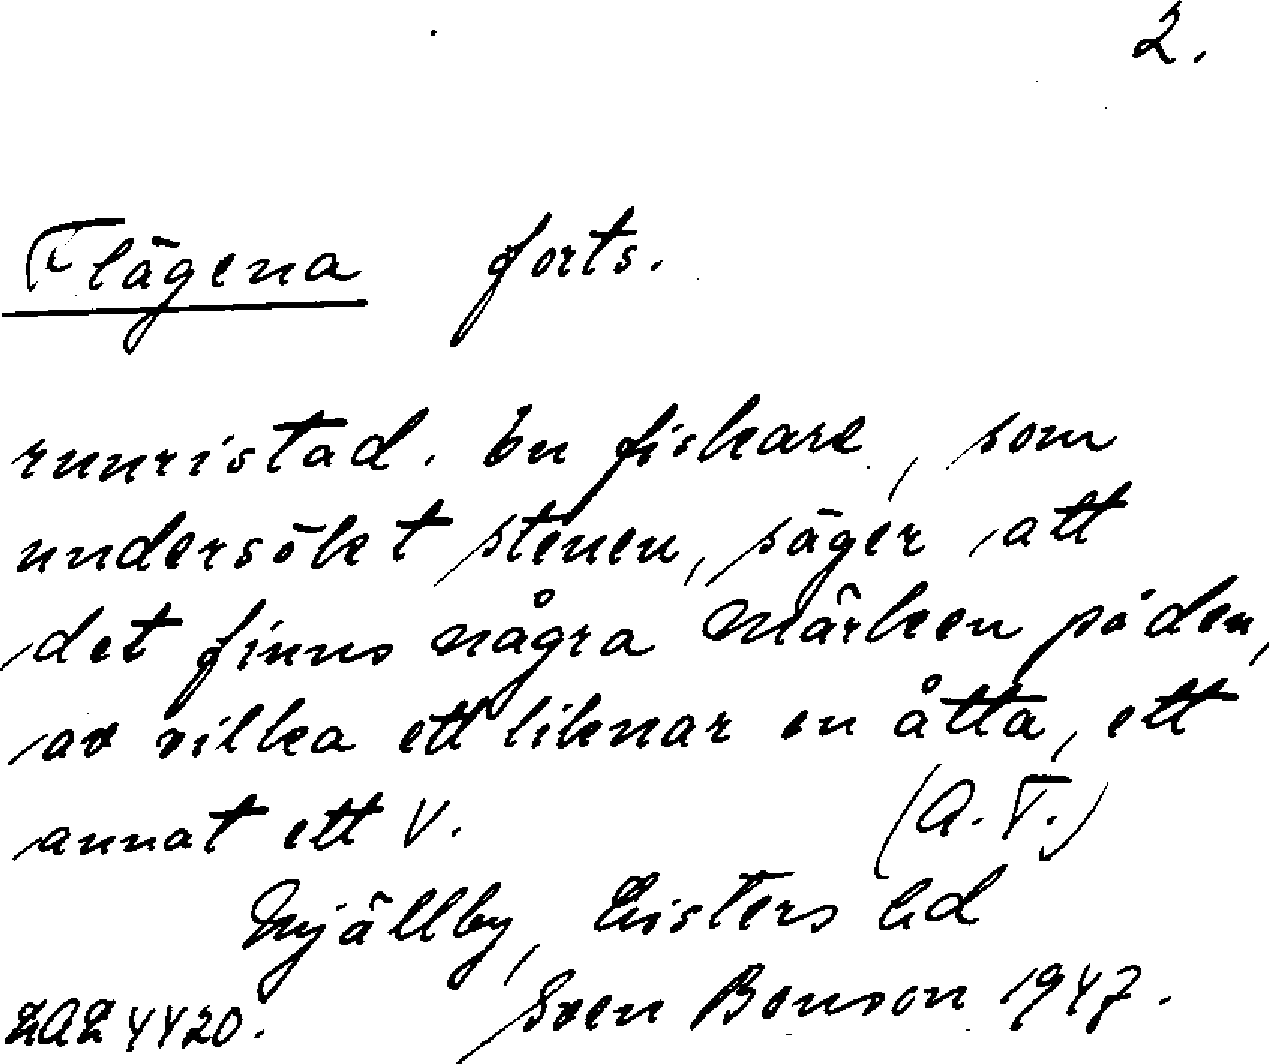 2.
Flägena forts.
runristad. En fiskare, som
undersökt stenen, säger att
det finns några märken på den,
av vilka ett liknar en åtta, ett
annat ett V. (A.T.)
Mjällby, Listers hd
LAL 4420. Sven Benson 1947.